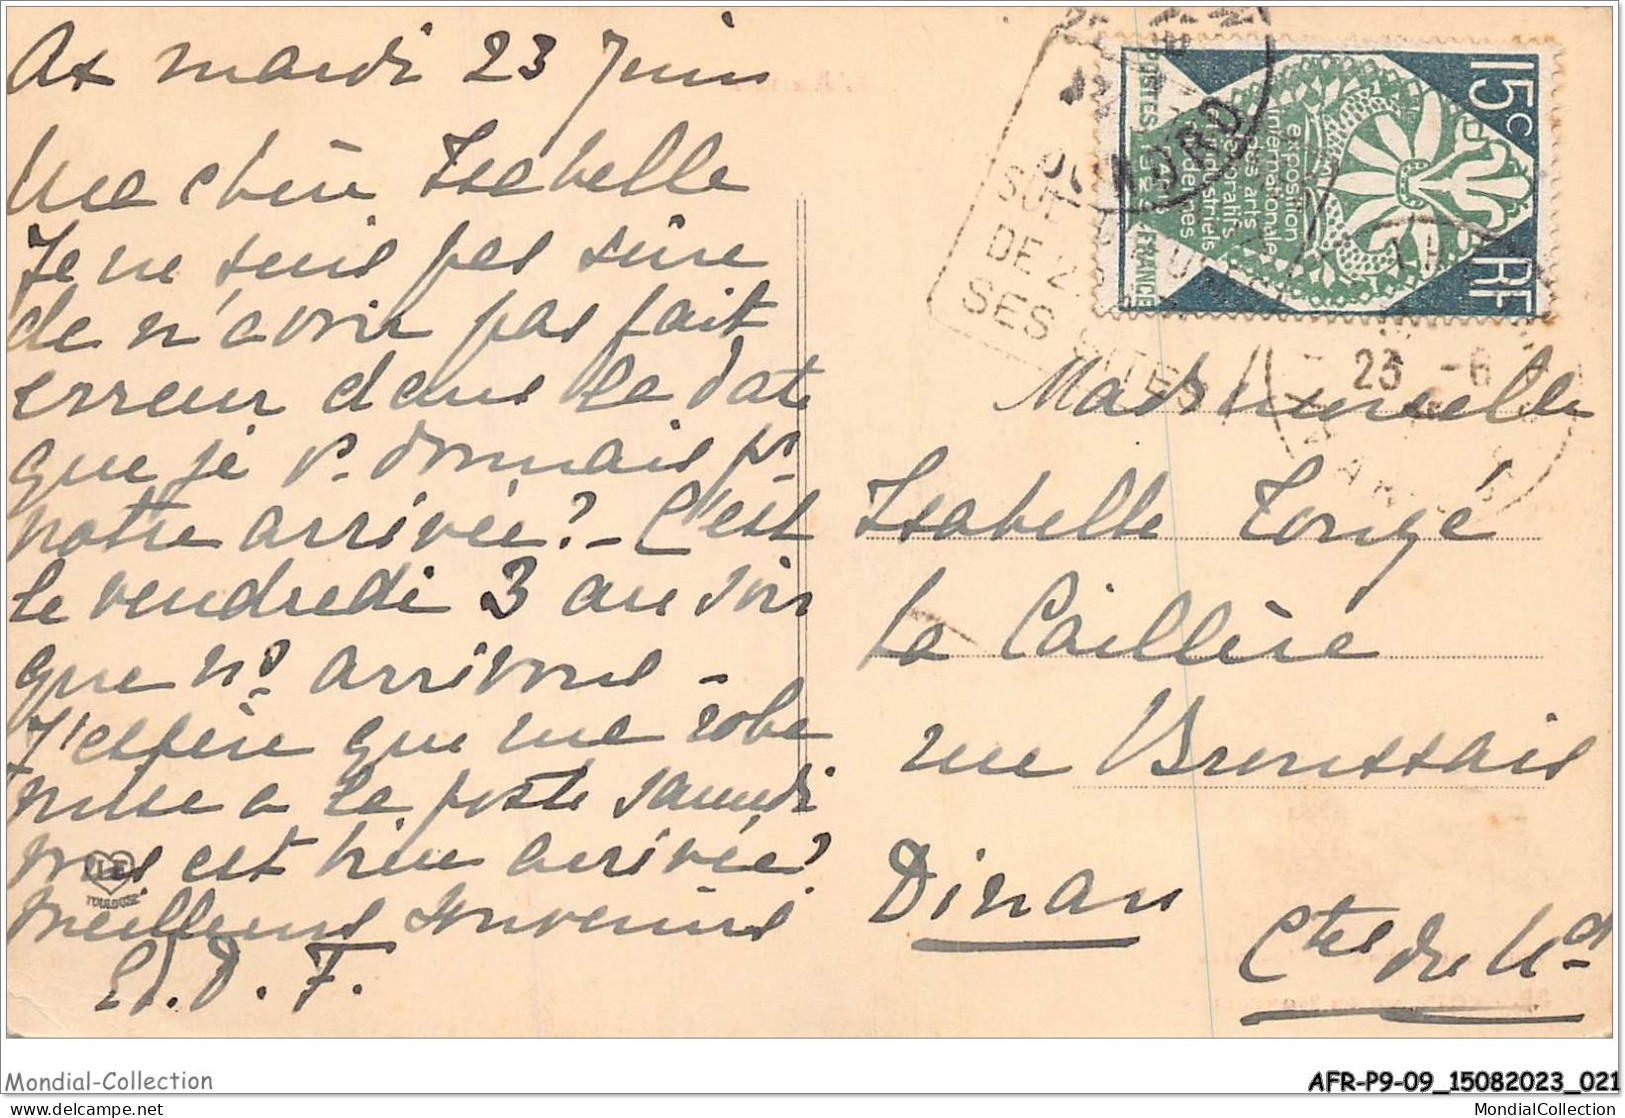 Ax mardi 23 Juin
Ma chère Isabelle
Je ne suis pas sûre
de n'avoir pas fait
erreur dans la date
que je v. donnais pr
notre arrivée? - C'est
le vendredi 3 au soir
que ns arrivons -
J'espère que ma robe
mise à la poste samedi
vous est bien arrivée?
Meilleurs souvenirs
D. F.
LF
TOULOUSE
15c
RF
POSTES
FRANCE
exposition
internationale
des arts
décoratifs
industriels
modernes
DE 2
SES GITES
23 -6
Mademoiselle
Isabelle Tougé
La Caillère
rue Broussais
Dinan
Ctes du Nd
Mondial-Collection
AFR-P9-09_15082023_021
delcampe.net
MondialCollection